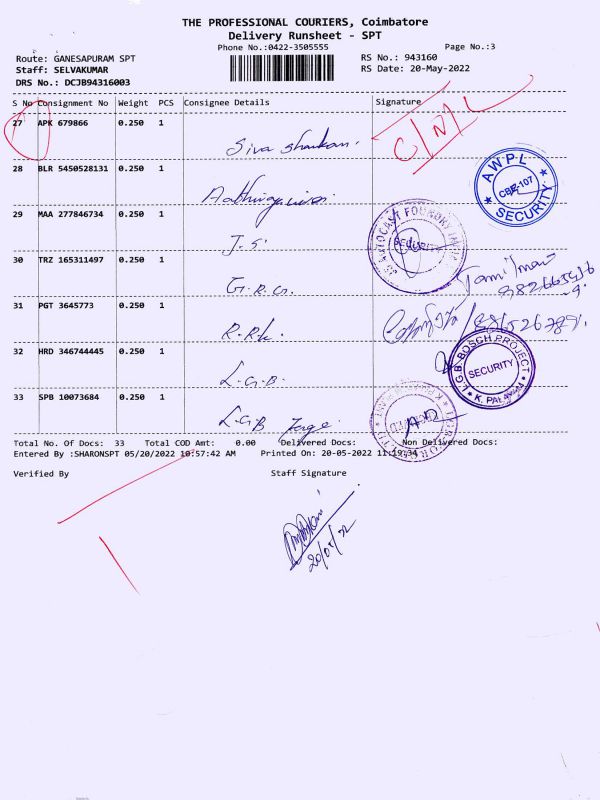 THE PROFESSIONAL COURIERS, Coimbatore
Delivery Runsheet - SPT
Phone No.:0422-3505555
Page No.:3
Route: GANESAPURAM SPT
RS No.: 943160
Staff: SELVAKUMAR
RS Date: 20-May-2022
DRS No.: DCJB94316003
S No Consignment No Weight PCS Consignee Details Signature
27 APK 679866 0.250 1 Siva Shankar. C/N/L
28 BLR 5450528131 0.250 1
AWPL CBE-107 SECURITY
29 MAA 277846734 0.250 1 J.S.
SECURITY
30 TRZ 165311497 0.250 1 G.R.G.
Tamilmani
31 PGT 3645773 0.250 1 R.R.K.
32 HRD 346744445 0.250 1 L.G.B.
L.G.B-BOSCH PROJECT SECURITY
33 SPB 10073684 0.250 1 L.G.B Forge
Total No. Of Docs: 33 Total COD Amt: 0.00 Delivered Docs: Non Delivered Docs:
Entered By :SHARONSPT 05/20/2022 10:57:42 AM Printed On: 20-05-2022 11:19:34
Verified By Staff Signature
20/05/22